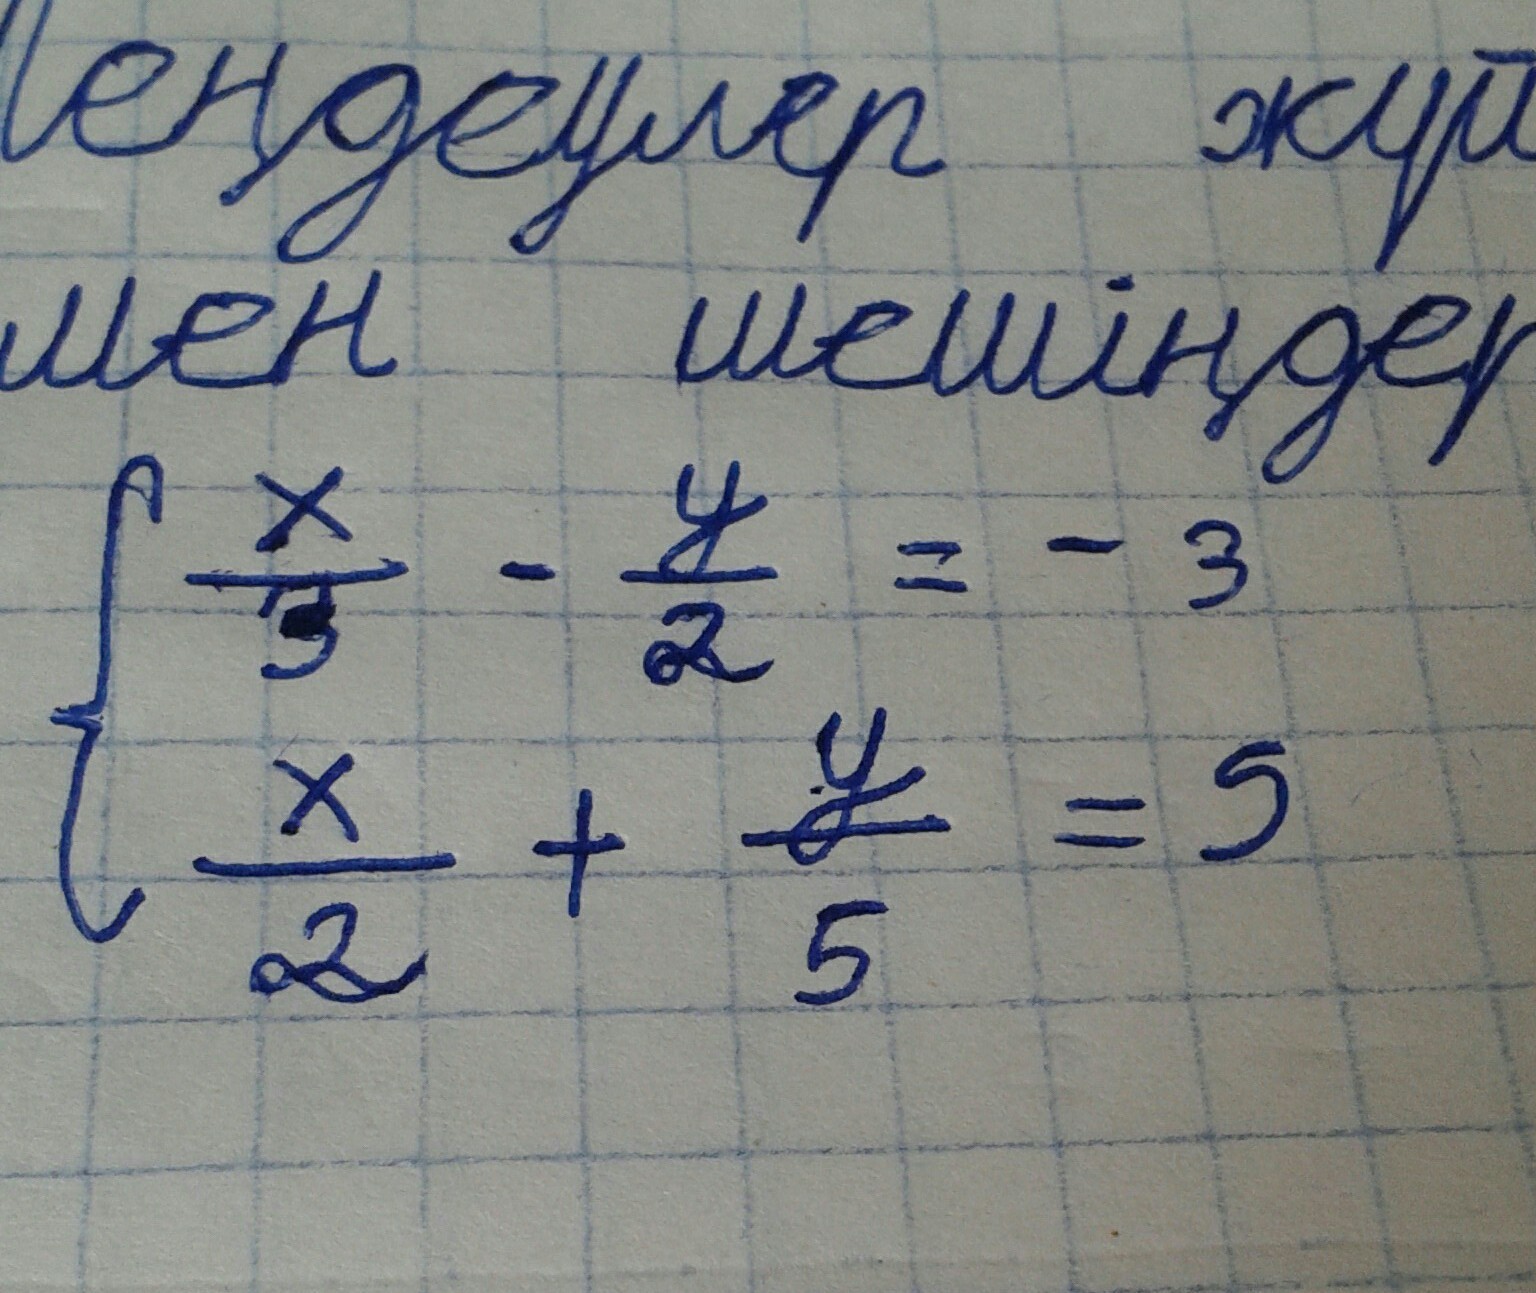 Теңдеулер жүй
мен шешіңдер
x/3 - y/2 = - 3
x/2 + y/5 = 5